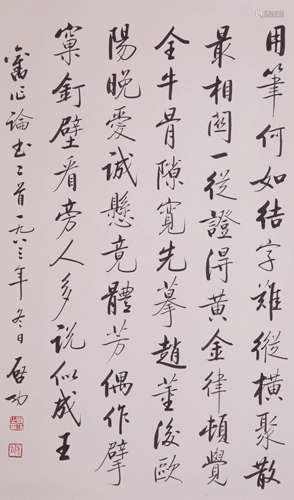 用筆何如結字難縱橫聚散
最相關一從證得黃金律頓覺
全牛骨隙寬先摹趙董後歐
陽晚愛誠懸竟體芳偶作擘
窠釘壁看旁人多說似成王
舊作論書二首一九八三年冬日啟功